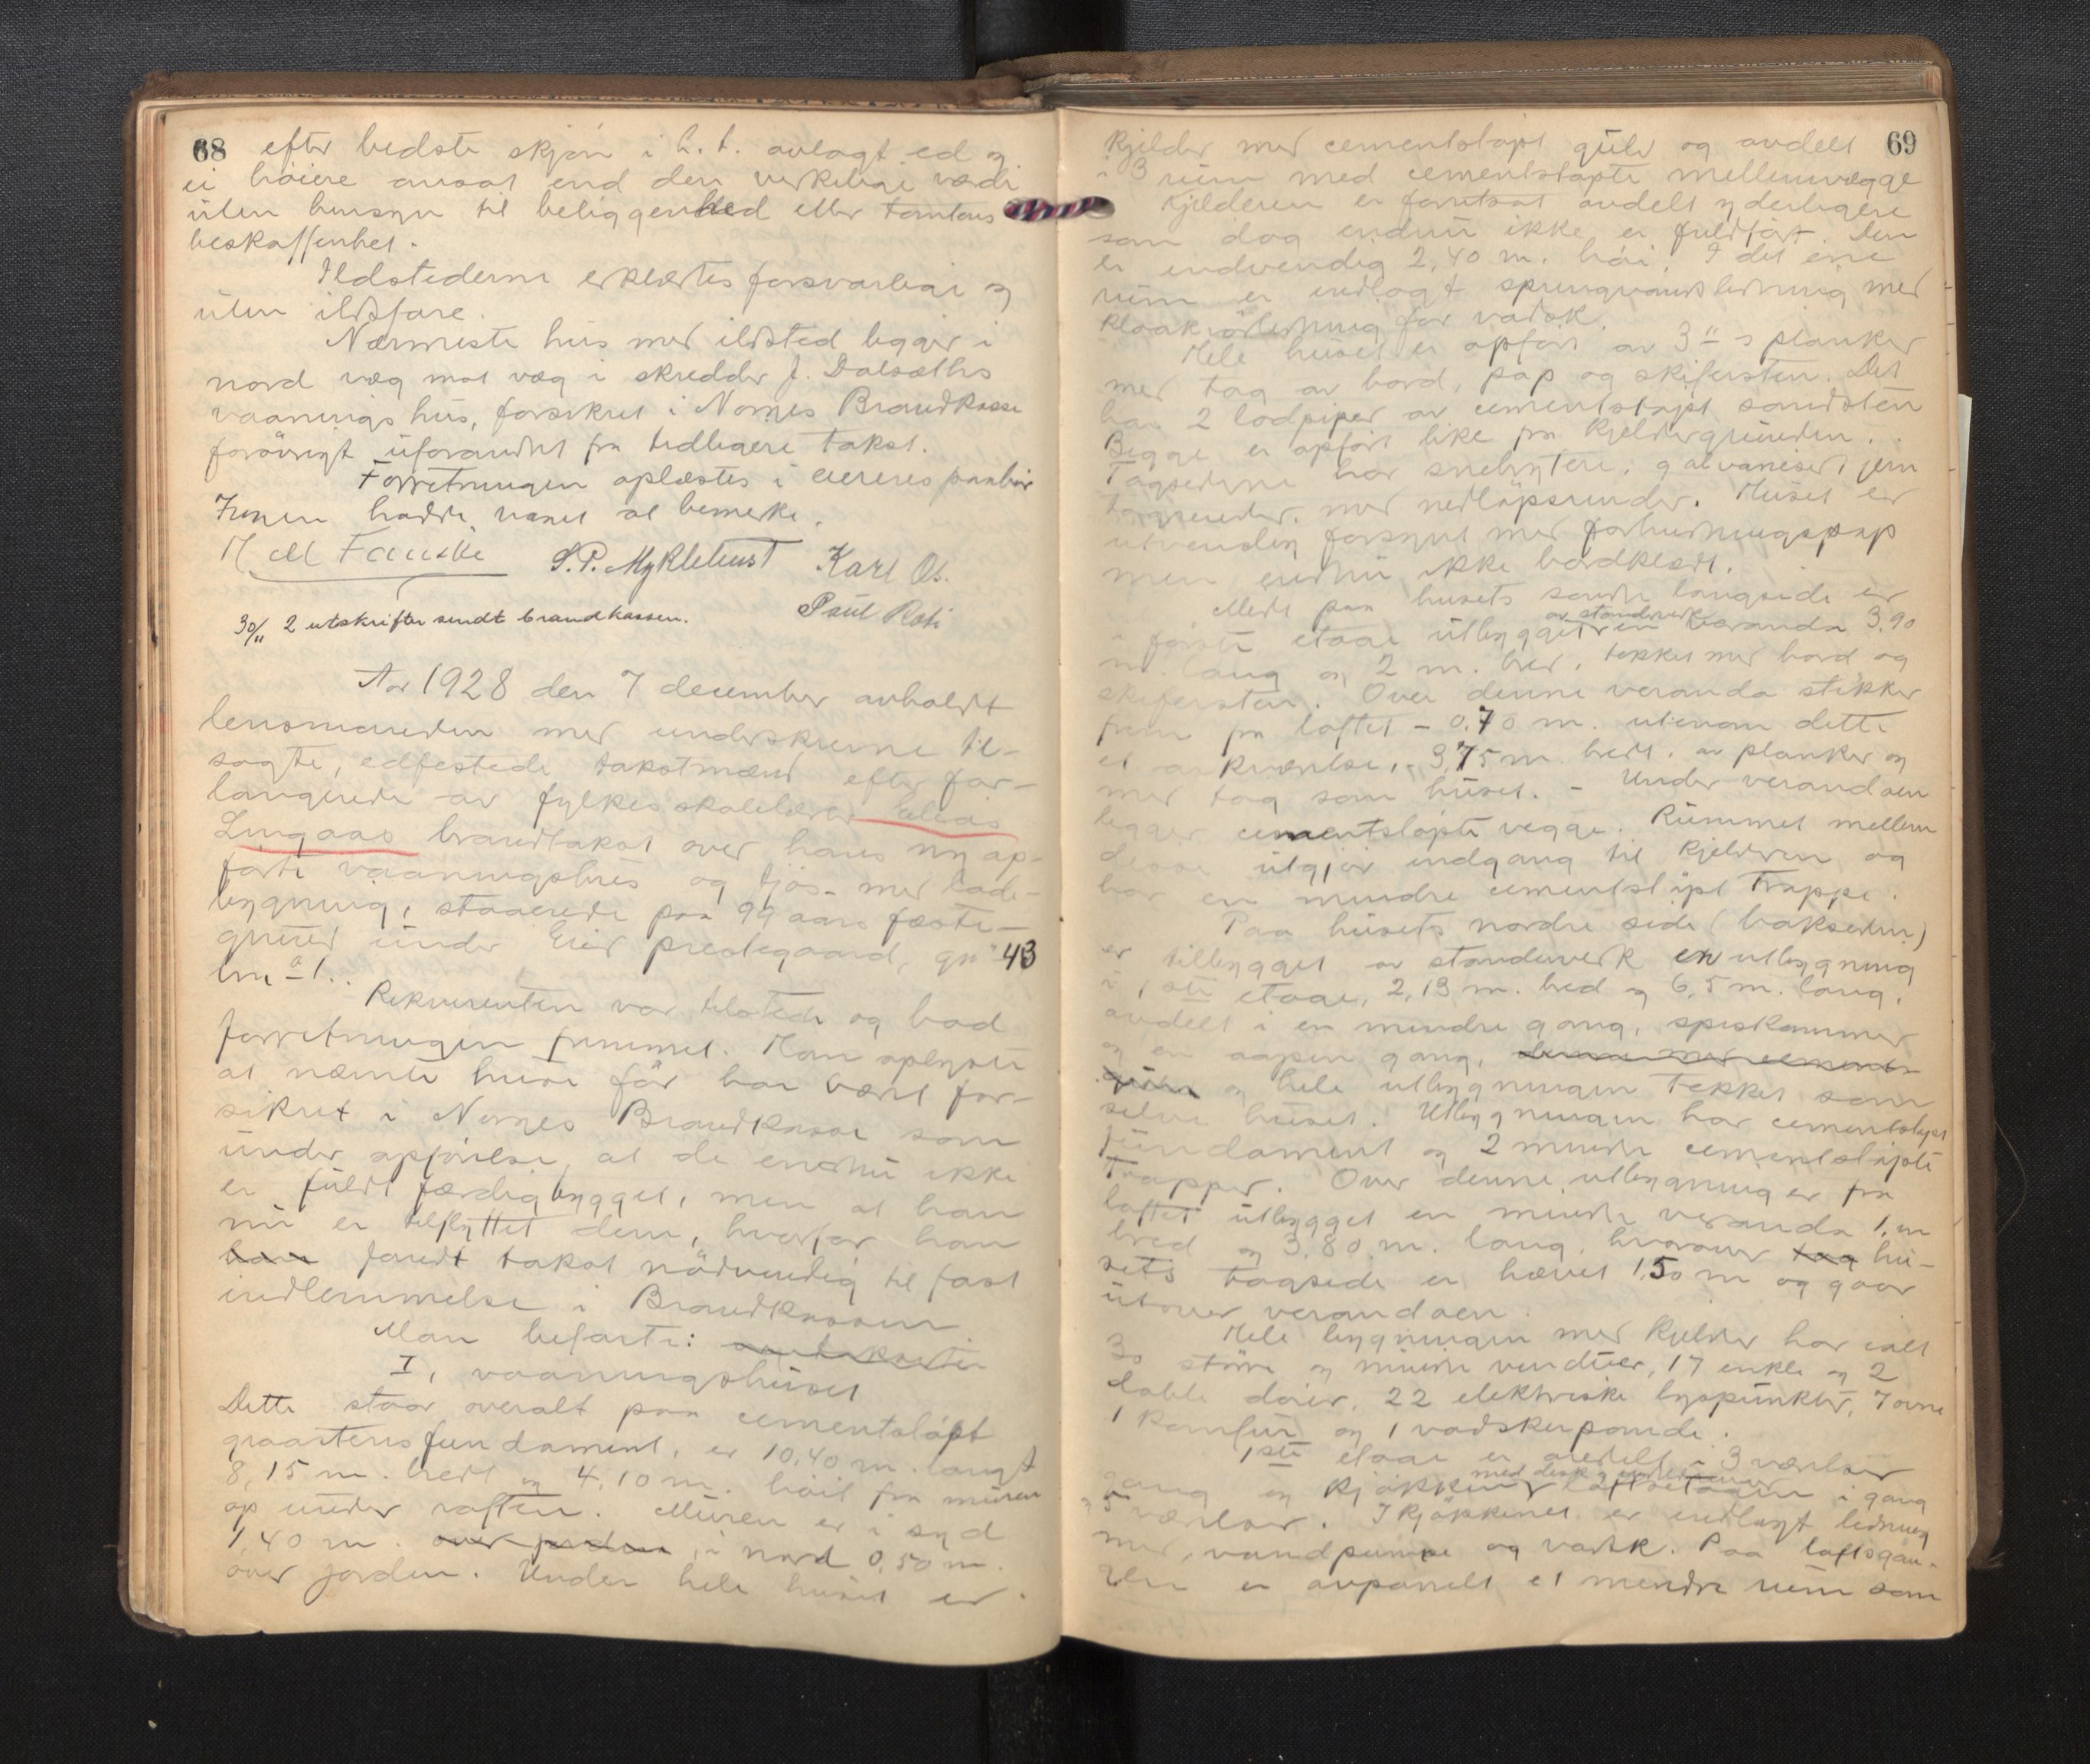 68 efter bedste skjøn i h. t. avlagt ed og
ei høiere ansat end den virkelige værdi
uten hensyn til beliggenhed eller tomtens
beskaffenhet.
Ildstederne erklærtes forsvarlige og
uten ildsfare.
Nærmeste hus med ildsted ligger i
nord væg mot væg i skredder J. Dalsæths
vaaningshus, forsikret i Norges Brandkasse
forøvrigt uforandret fra tidligere takst.
Forretningen oplæstes i eierens paahør
Ingen hadde noget at bemerke.
M Fauske S. P. Myklebust Karl Os.
Paul Roti
30/11 2 utskrifter sendt brandkassen.
Aar 1928 den 7 december avholdt
lensmanden med underskrevne til-
sagte, edfestede takstmænd efter for-
langende av fylkesskolelærer Elias
Lingaas brandtakst over hans ny op-
førte vaaningshus og fjøs- med lade-
bygning, staaende paa 99 aars fæste-
grund under Eid prestegaard, gn 43
bn. 1.
Rekvirenten var tilstede og bad
forretningen fremmet. Han oplyste
at nævnte huse før har været for-
sikret i Norges Brandkasse som
under opførelse, at de endnu ikke
er fuldt færdigbygget, men at han
nu er tilflyttet dem, hvorfor han
han fandt takst nødvendig til fast
indlemmelse i Brandkassen.
Man befarte:
I, vaaningshuset
Dette staar overalt paa cementstøpt
graastensfundament, er 10,40 m. langt
8,15 m. bredt og 4,10 m. høit fra muren
op under raften. Muren er i syd
1,40 m. over jorden, i nord 0,50 m.
over jorden. Under hele huset er
kjelder med cementstøpt gulv og avdelt 69
i 3 rum med cementstøpte mellemvægge
Kjelderen er forutsat avdelt yderligere
som dog endnu ikke er fuldført. Den
er indvendig 2,40 m. høi. I det ene
rum er indlagt springvandsledning med
kloakavledning for vadsk.
Hele huset er opført av 3" s planker
med tag av bord, pap og skifersten. Det
har 2 lodpiper av cementstøpt sandsten
Begge er opført like fra kjeldergrunden.
Tagsiderne har snebrytere, galvanisert jern
tagrender med nedløpsrender. Huset er
utvendig forsynet med forhudningspap
men endnu ikke bordklædt.
Midt paa husets søndre langside er
av standerverk
i første etage utbygget en veranda 3,90
m. lang og 2 m. bred, tekket med bord og
skifersten. Over denne veranda stikker
frem fra loftet - 0,70 m. utenom dette
et av kvartelse, - 3,75 m. bredt, av planker og
med tag som huset. - Under verandaen
ligger cementstøpte vegge. Rummet mellem
disse utgjør indgang til kjelderen og
har en mindre cementstøpt trappe.
Paa husets nordre side (baksiden)
er tilbygget av standerverk en utbygning
i 1ste etage, 2,13 m. bred og 6,5 m. lang,
avdelt i en mindre gang, spiskammer
og en aapen gang, denne med cement-
gulv og hele utbygningen tekket som
selve huset. Utbygningen har cementstøpt
fundament og 2 mindre cementstøpte
trapper. Over denne utbygning er fra
loftet utbygget en mindre veranda 1, m
bred og 3,80 m. lang, hvorover tag hu-
sets tagside er hævet 1,50 m og gaar
utover verandaen.
Hele bygningen med kjelder har ialt
30 større og mindre vinduer, 17 enkle og 2
doble dører, 22 elektriske lyspunkter, 7 ovne
1 komfur og 1 vadskerpande.
1ste etage er avdelt i 3 værelser
gang og kjøkken, loftsetagen i gang
og 5 værelser. I kjøkkenet er indlagt ledning
med vandpumpe og vadsk. Paa loftsgan-
gen er avpanelt et mindre rum som